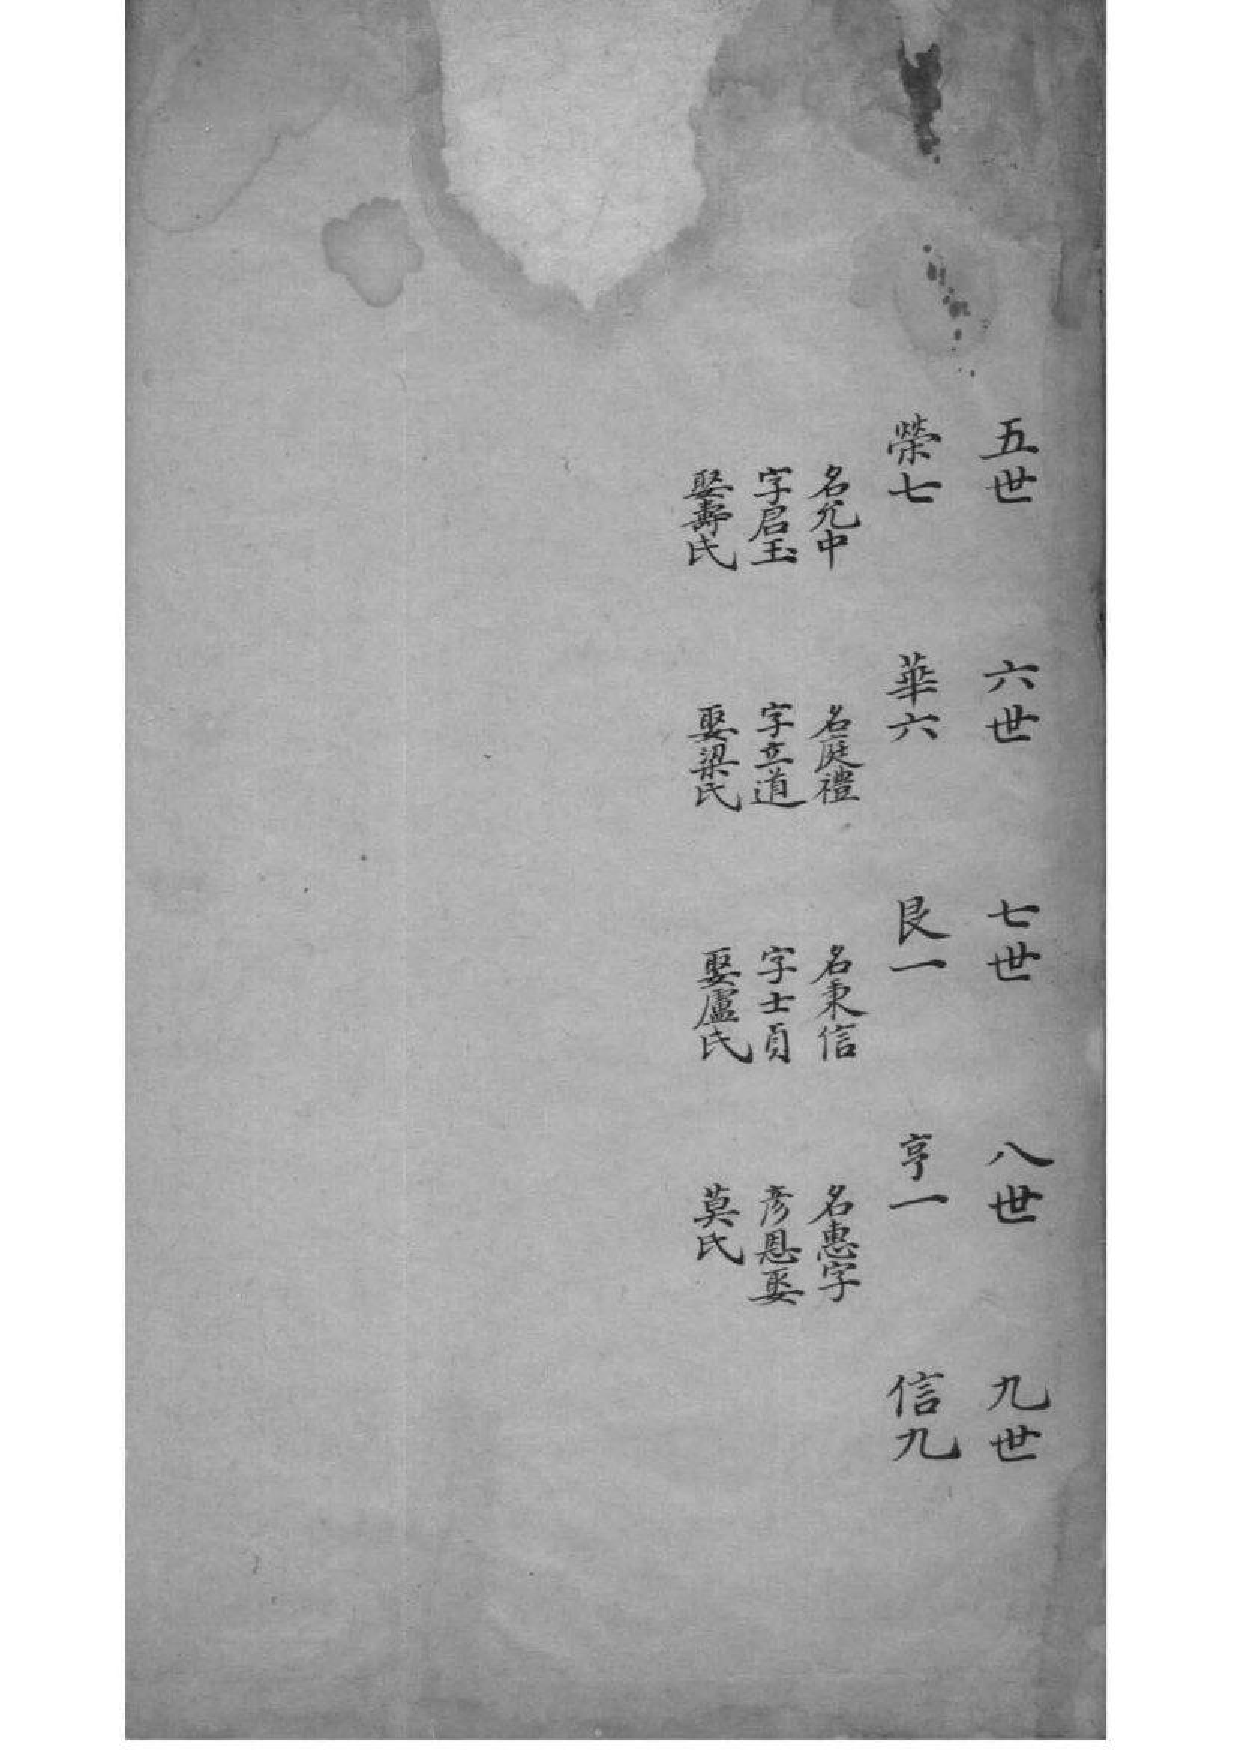 五世
榮七
名允中
字启玉
娶壽氏
六世
華六
名庭禮
字立道
娶梁氏
七世
艮一
名秉信
字士貞
娶盧氏
八世
亨一
名惠字
彥恩娶
莫氏
九世
信九